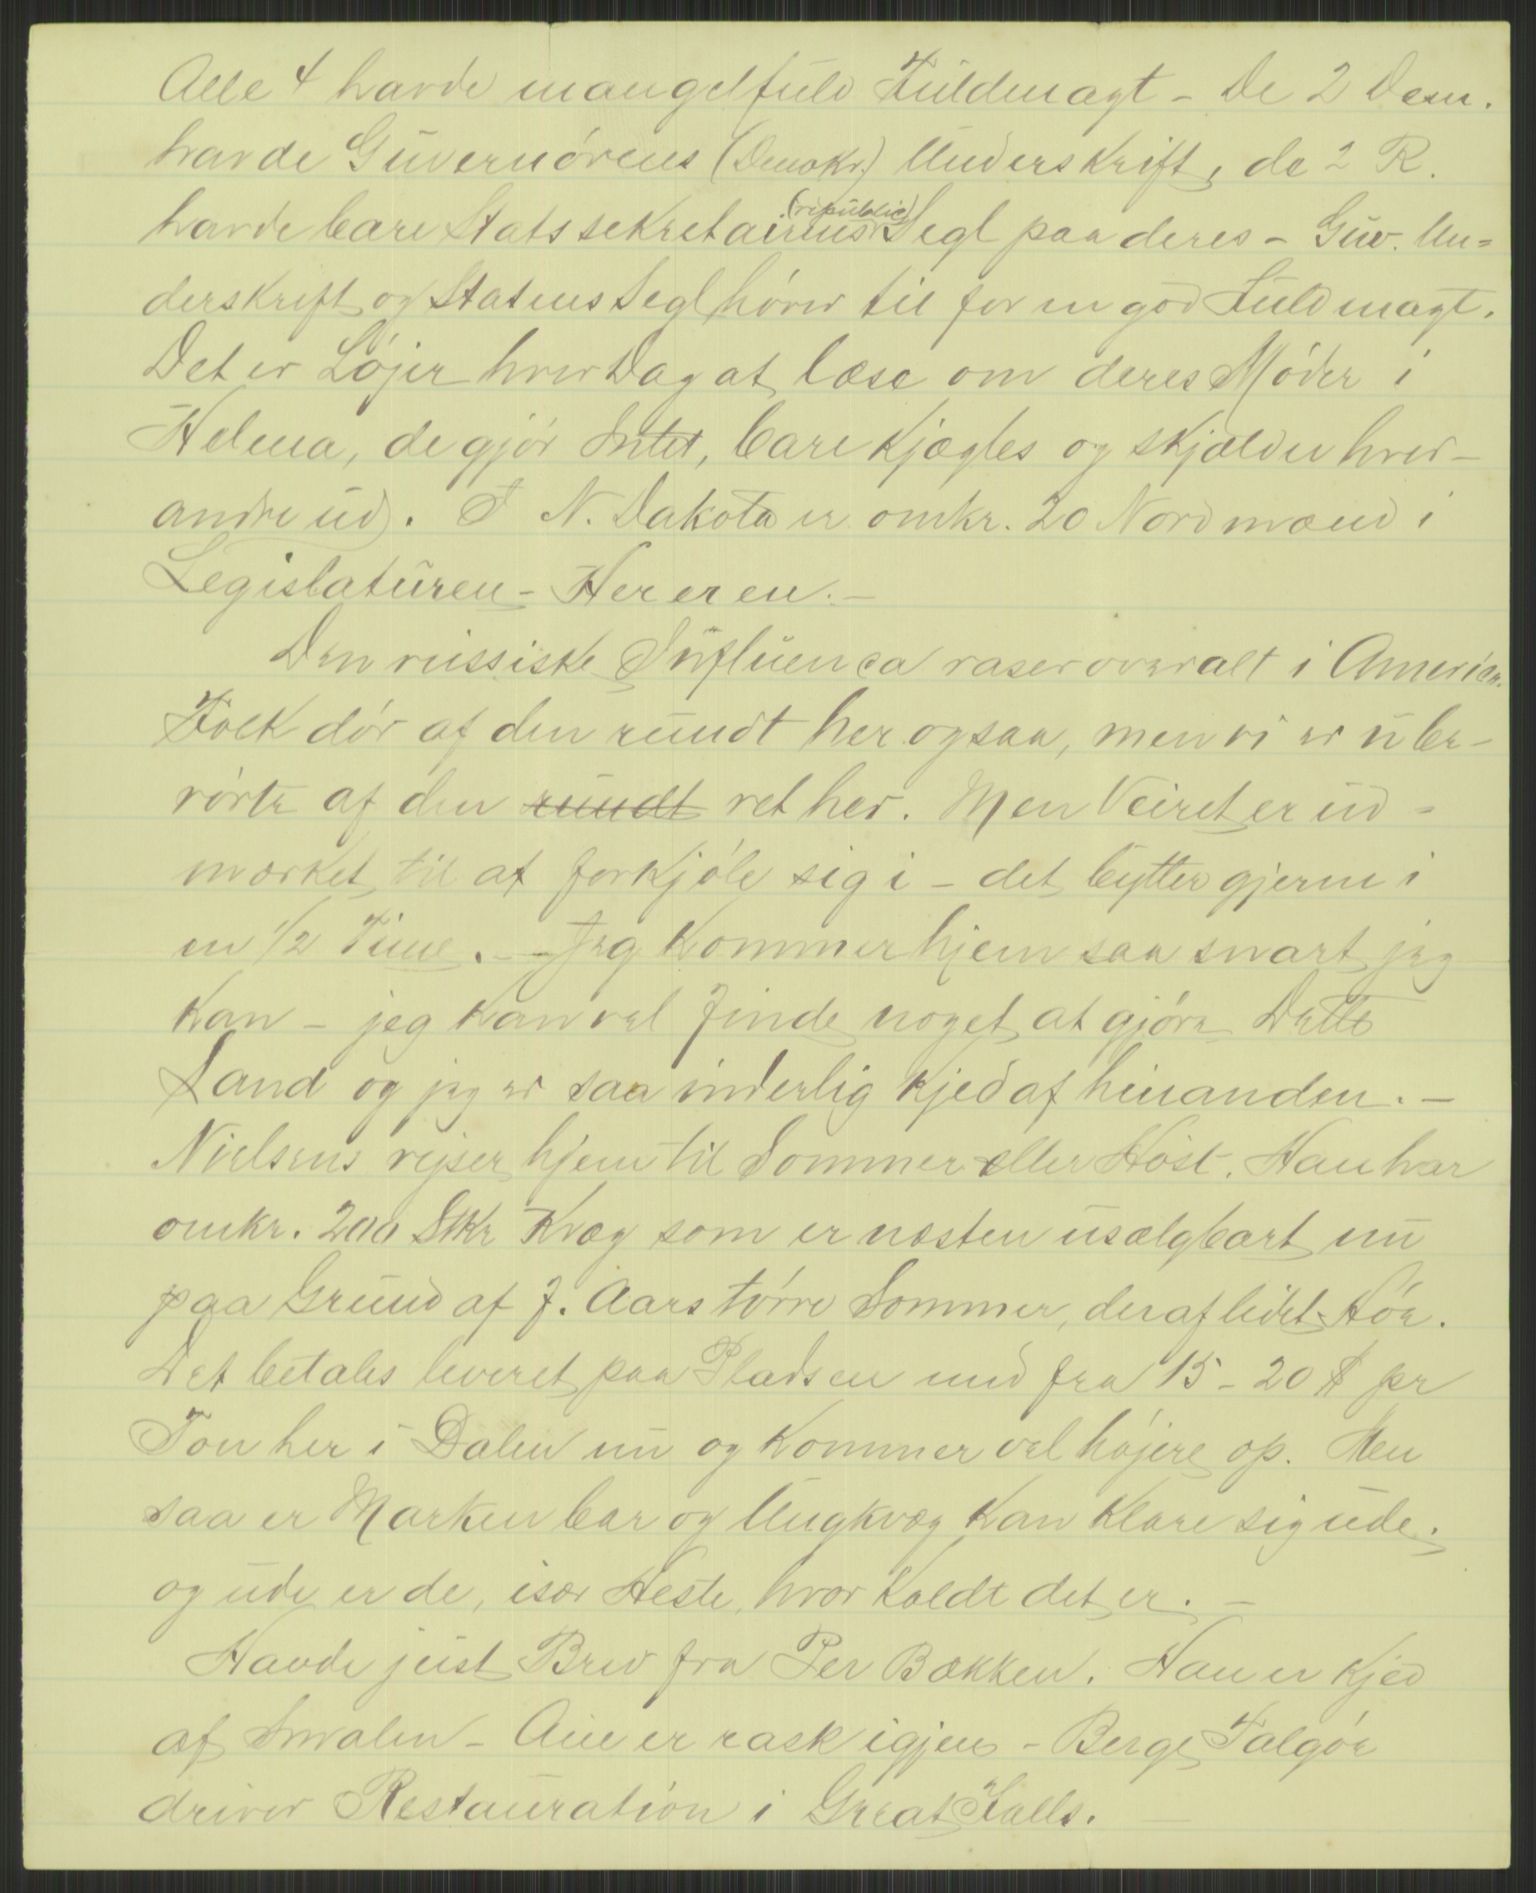 Alle 4 havde mangelfuld Fuldmagt - De 2 Dem.
havde Guvernørens (Demokr.) Underskrift, de 2 R.
havde bare Statssekretairens (republic) Segl paa deres - Guv. Un=
derskrift og Statens Segl hører til for en god Fuldmagt.
Det er Løjer hver Dag at læse om deres Møder i
Helena, de gjør Intet, bare kjægles og skjælder hver-
andre ud. I N. Dakota er omkr. 20 Nordmænd i
Legislaturen - Her er en. -
Den russiske Influenca raser overalt i America.
Folk dør af den rundt her ogsaa, men vi er ube-
rørte af den rundt ret her. Men Veiret er ud-
mærket til at forkjøle sig i - det bytter gjerne i
en 1/2 Time. - Jeg kommer hjem saa snart jeg
kan - jeg kan vel finde noget at gjøre Dette
Land og jeg er saa inderlig kjed af hinanden. -
Nielsens rejser hjem til Sommer eller Høst. Han har
omkr. 200 Stkr Kvæg som er næsten usælgbart nu
paa Grund af f. Aars tørre Sommer, deraf lidet Hø.
Det betales leveret paa Pladsen med fra 15 - 20 $ pr
Ton her i Dalen nu og kommer vel højere op. Men
saa er Marken bar og Ungkvæg kan klare sig ude.
og ude er de, især Heste, hvor koldt det er. -
Havde just Brev fra Per Bækken. Han er kjed
af Svalen - Ane er rask igjen - Berge Falgøe
driver Restauration i Great Falls. -